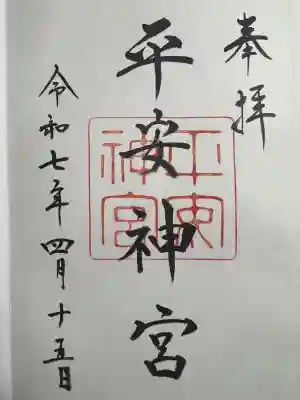 奉拝
平安神宮
平安神宮
令和七年四月十五日